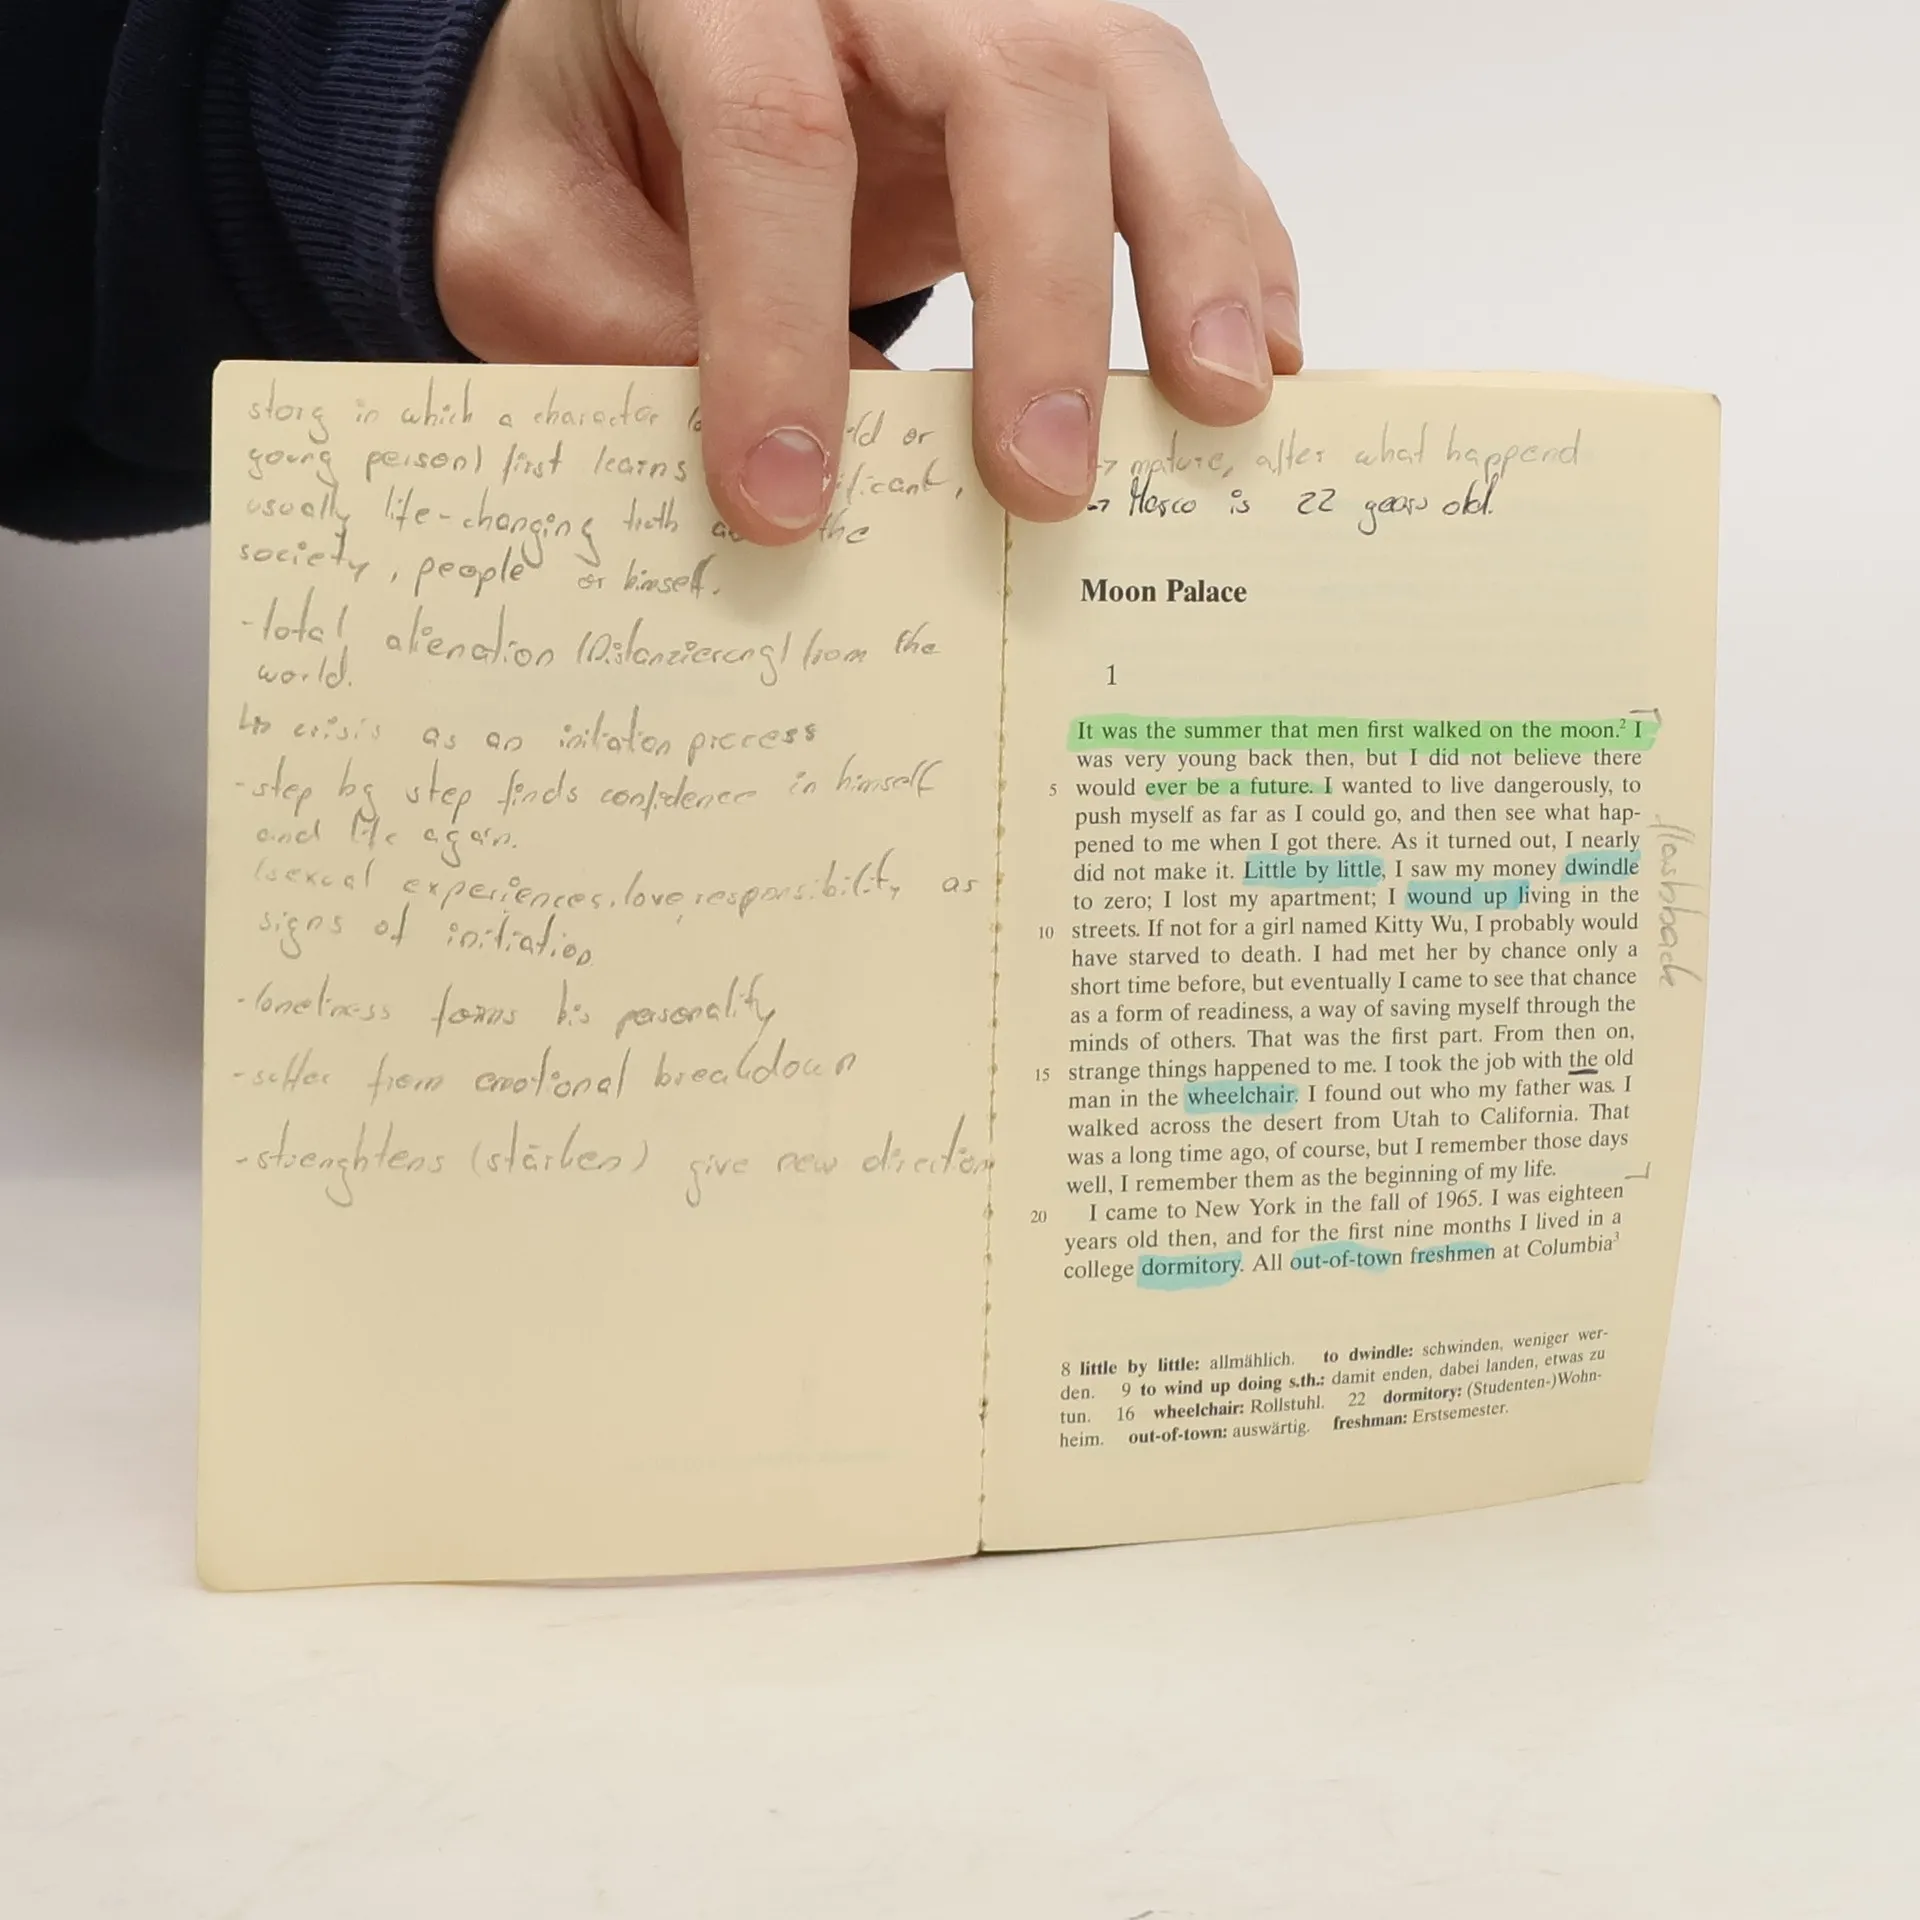 story in which a character
young person) first learns
usually life-changing truth the
society, people or himself.
-total alienation (Distanzierung) from the
world.
crisis as an initiation process
-step by step finds confidence in himself
and life again.
(sexual experiences, love, responsibility as
signs of initiation
-loneliness forms his personality
-suffer from emotional breakdown
-strenghtens (stärken) give new direction
→ mature, after what happend
→ Marco is 22 years old.
Moon Palace
1
It was the summer that men first walked on the moon.² I
was very young back then, but I did not believe there
5 would ever be a future. I wanted to live dangerously, to
push myself as far as I could go, and then see what hap-
pened to me when I got there. As it turned out, I nearly
did not make it. Little by little, I saw my money dwindle
to zero; I lost my apartment; I wound up living in the
10 streets. If not for a girl named Kitty Wu, I probably would
have starved to death. I had met her by chance only a
short time before, but eventually I came to see that chance
as a form of readiness, a way of saving myself through the
minds of others. That was the first part. From then on,
15 strange things happened to me. I took the job with the old
man in the wheelchair. I found out who my father was. I
walked across the desert from Utah to California. That
was a long time ago, of course, but I remember those days
well, I remember them as the beginning of my life.
20 I came to New York in the fall of 1965. I was eighteen
years old then, and for the first nine months I lived in a
college dormitory. All out-of-town freshmen at Columbia³
flashback
8 little by little: allmählich. to dwindle: schwinden, weniger wer-
den. 9 to wind up doing s.th.: damit enden, dabei landen, etwas zu
tun. 16 wheelchair: Rollstuhl. 22 dormitory: (Studenten-)Wohn-
heim. out-of-town: auswärtig. freshman: Erstsemester.